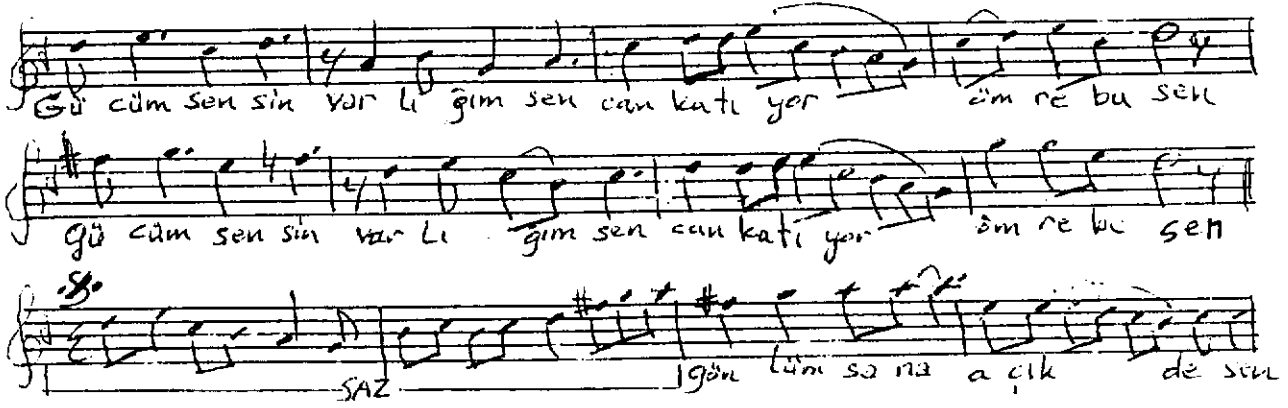 Gü cüm sen sin var lı ğım sen can katı yor öm re bu sen
gü cüm sen sin var lı ğım sen can katı yor öm re bu sen
SAZ gön lüm sa na a çık de sen